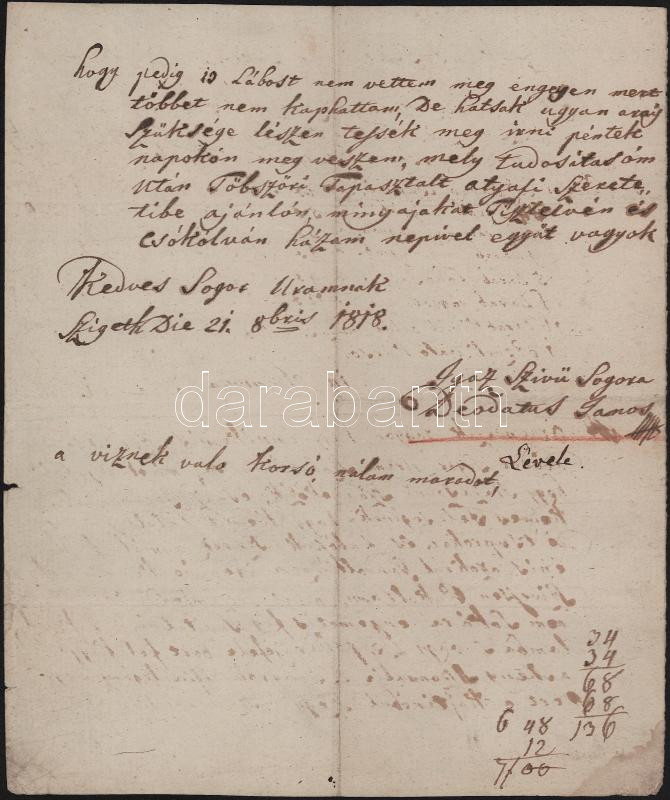 hogy pedig is Lábost nem vettem meg engegen mert
többet nem kaphattam, De hatsak ugyan arra
Szüksége lészen tessék meg irni péntek
napokón meg veszem, mely tudositasóm
Után Töbszöri Tapasztalt atyafi Szerete„
tibe ajánlón, mingajakat Tisztelvén és
Csókólván házam nepivel egyűt vagyok
Kedves Sogor Uramnák
Szigeth Die 21. 8bris 1818.
Igaz Szivü Sogora
Deodatus Janos
Levele.
a viznek valo Korsó, nálam maradot,
34
34
68
68
136
6 48
12
7/00
darabanth